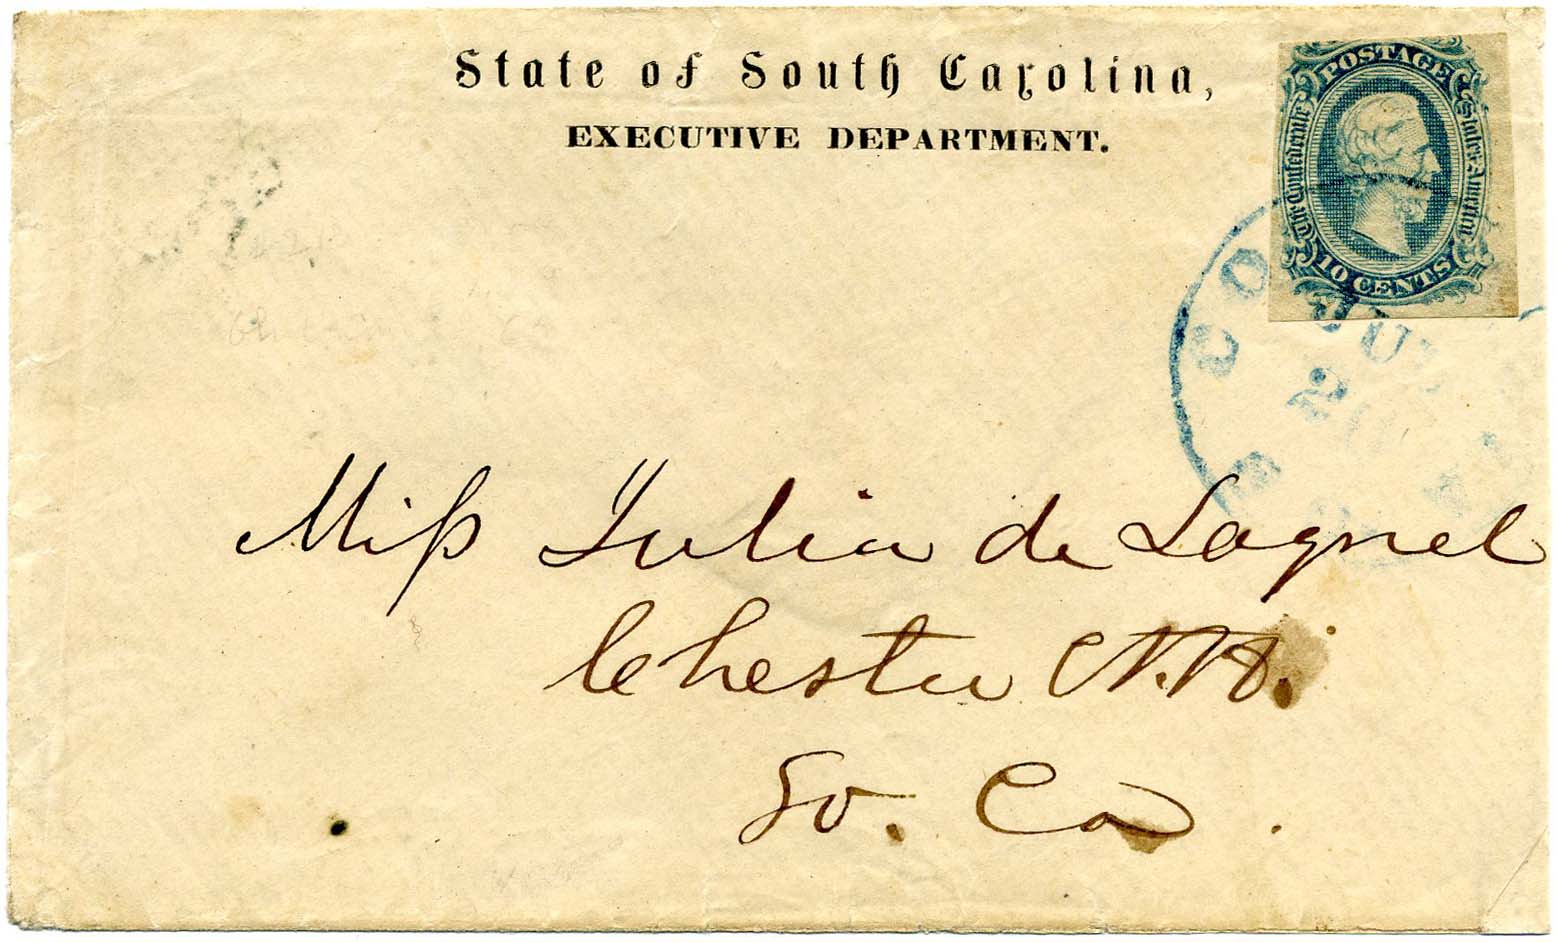 State of South Carolina,
EXECUTIVE DEPARTMENT.
POSTAGE
The Confederate States of America
10 CENTS
COLUM
2
Miss Julia de Lagnel
Chester C.H.
So. Ca.